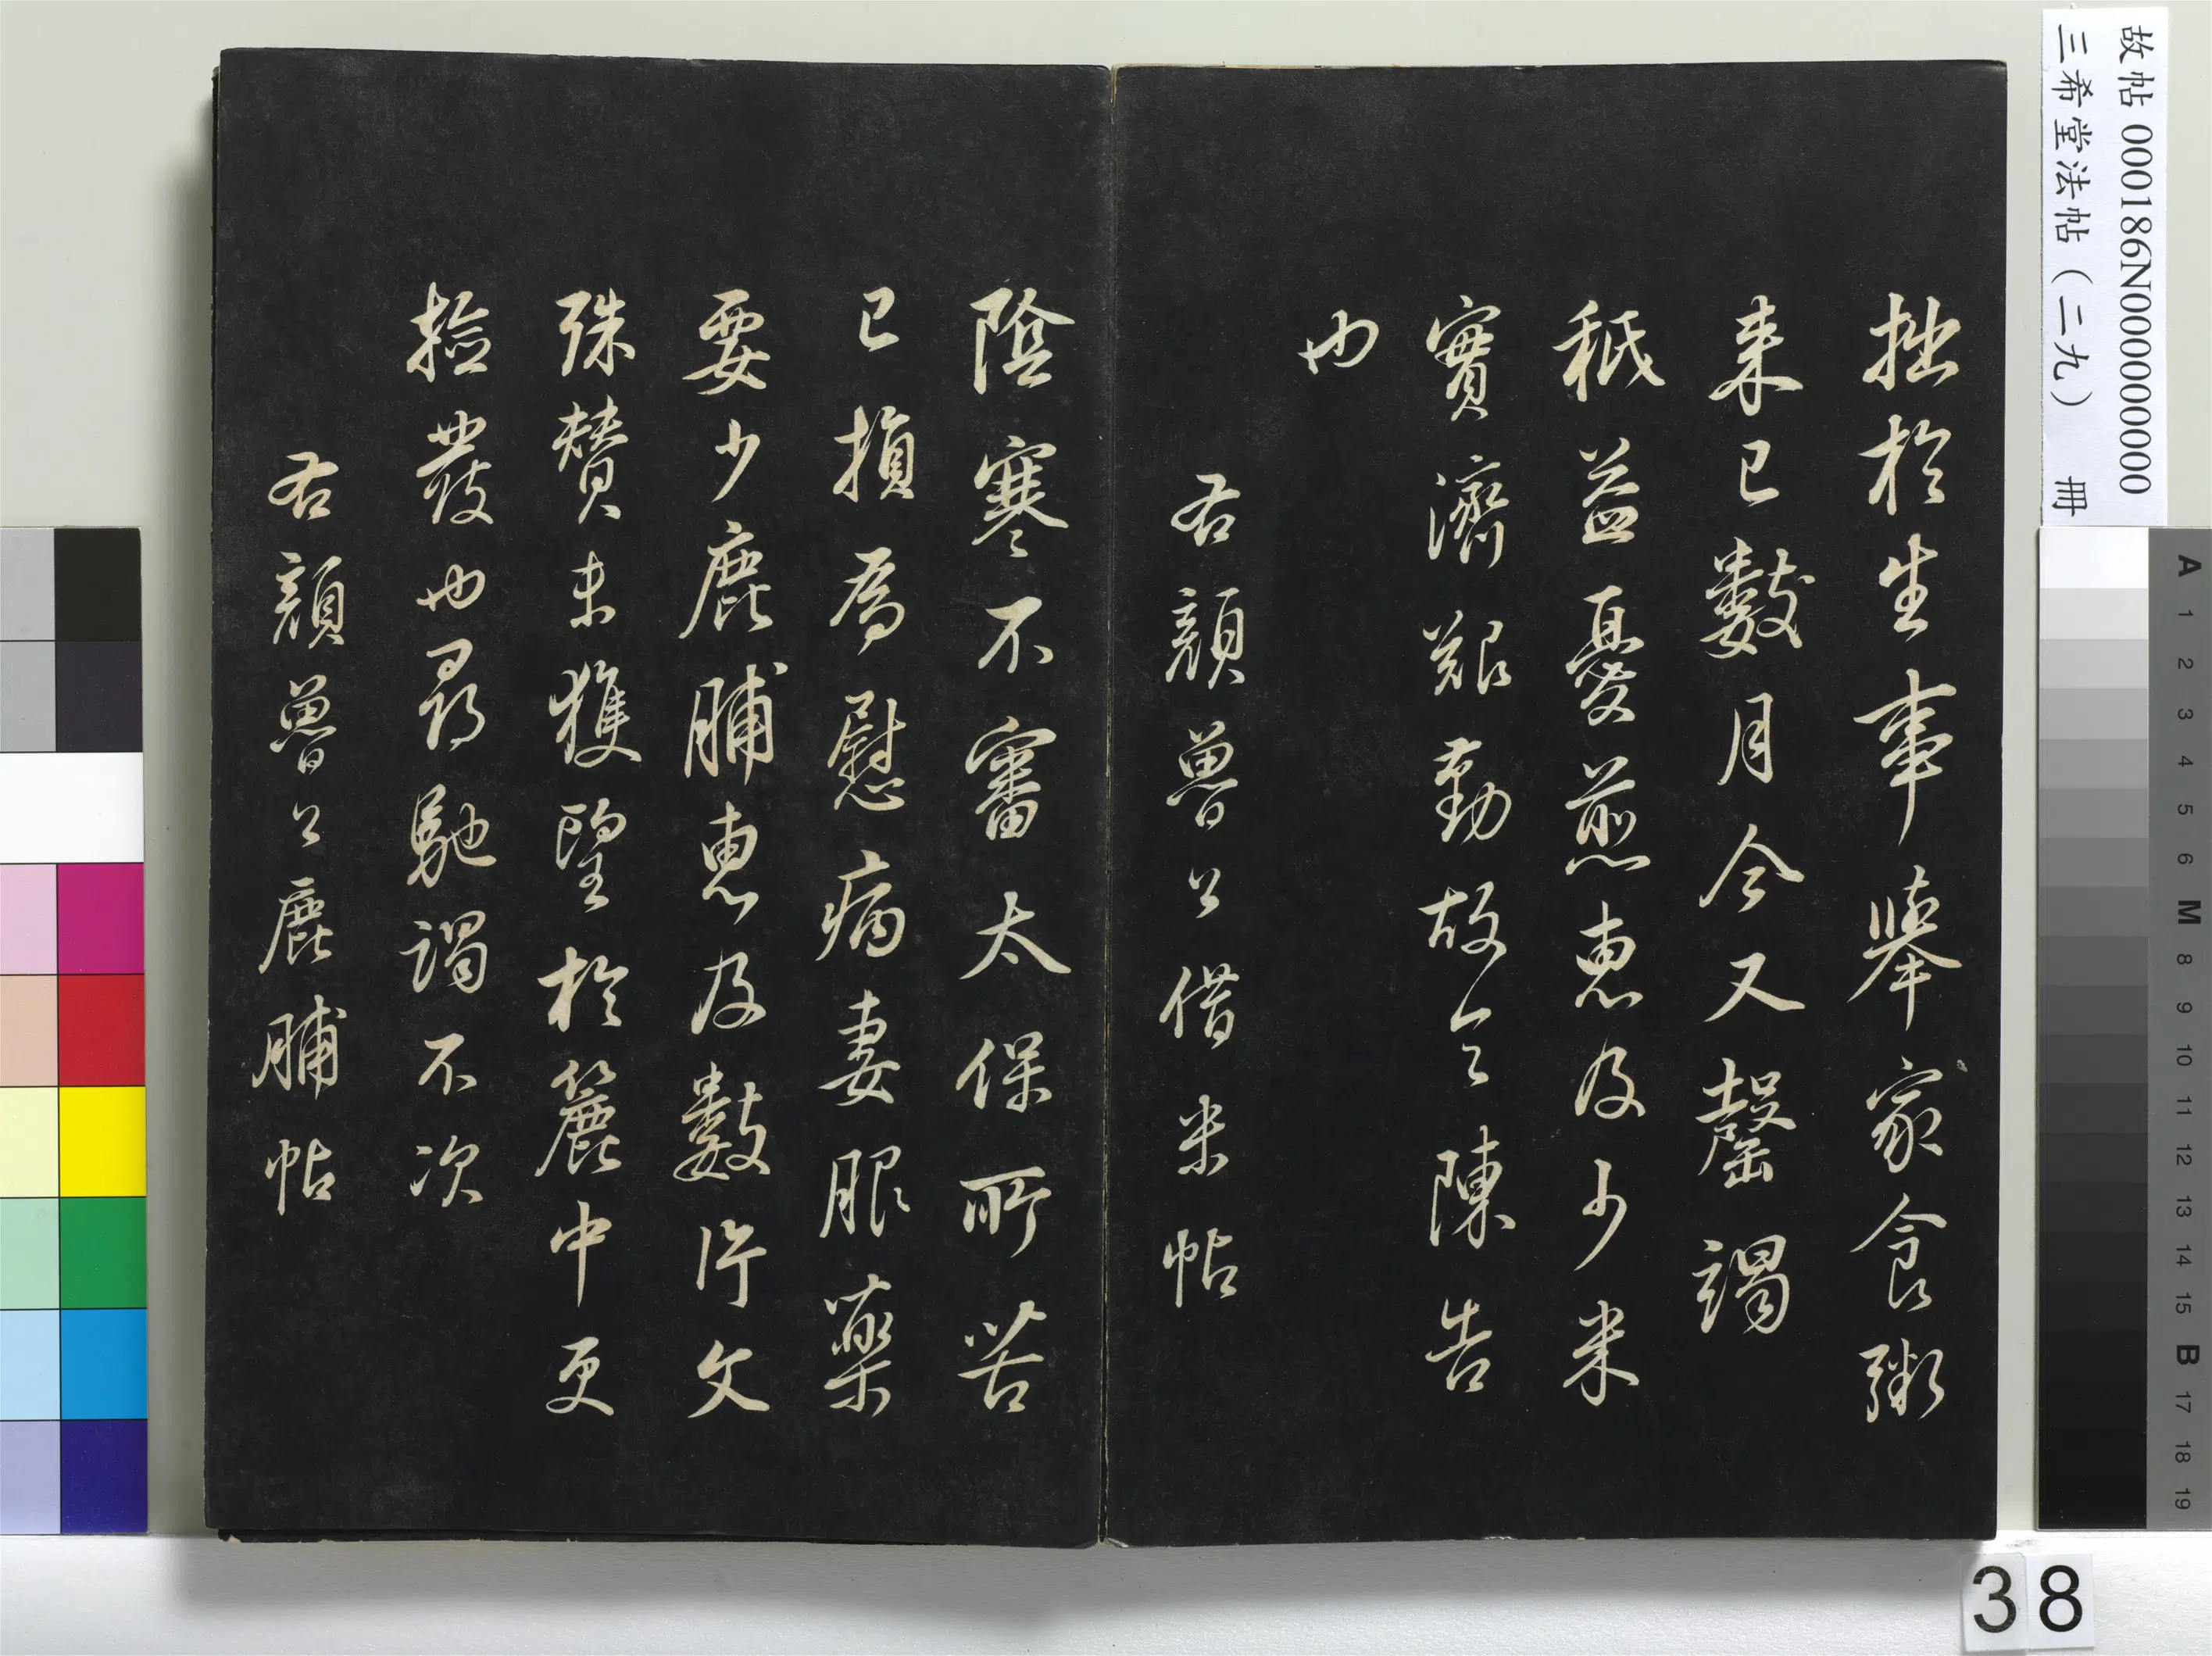 拙於生事舉家食粥
来已數月今又罄竭
秖益憂煎惠及少米
實濟艱勤故令陳告
也
右顔魯公借米帖
陰寒不審太保所苦
已損為慰病妻服藥
要少鹿脯惠及數片文
殊賛未獲望於簏中更
撿發也尋馳謁不次
右顔魯公鹿脯帖
故帖 000186N000000000
三希堂法帖（二九） 冊
A 1 2 3 4 5 6 M 8 9 10 11 12 13 14 15 B 17 18 19
38